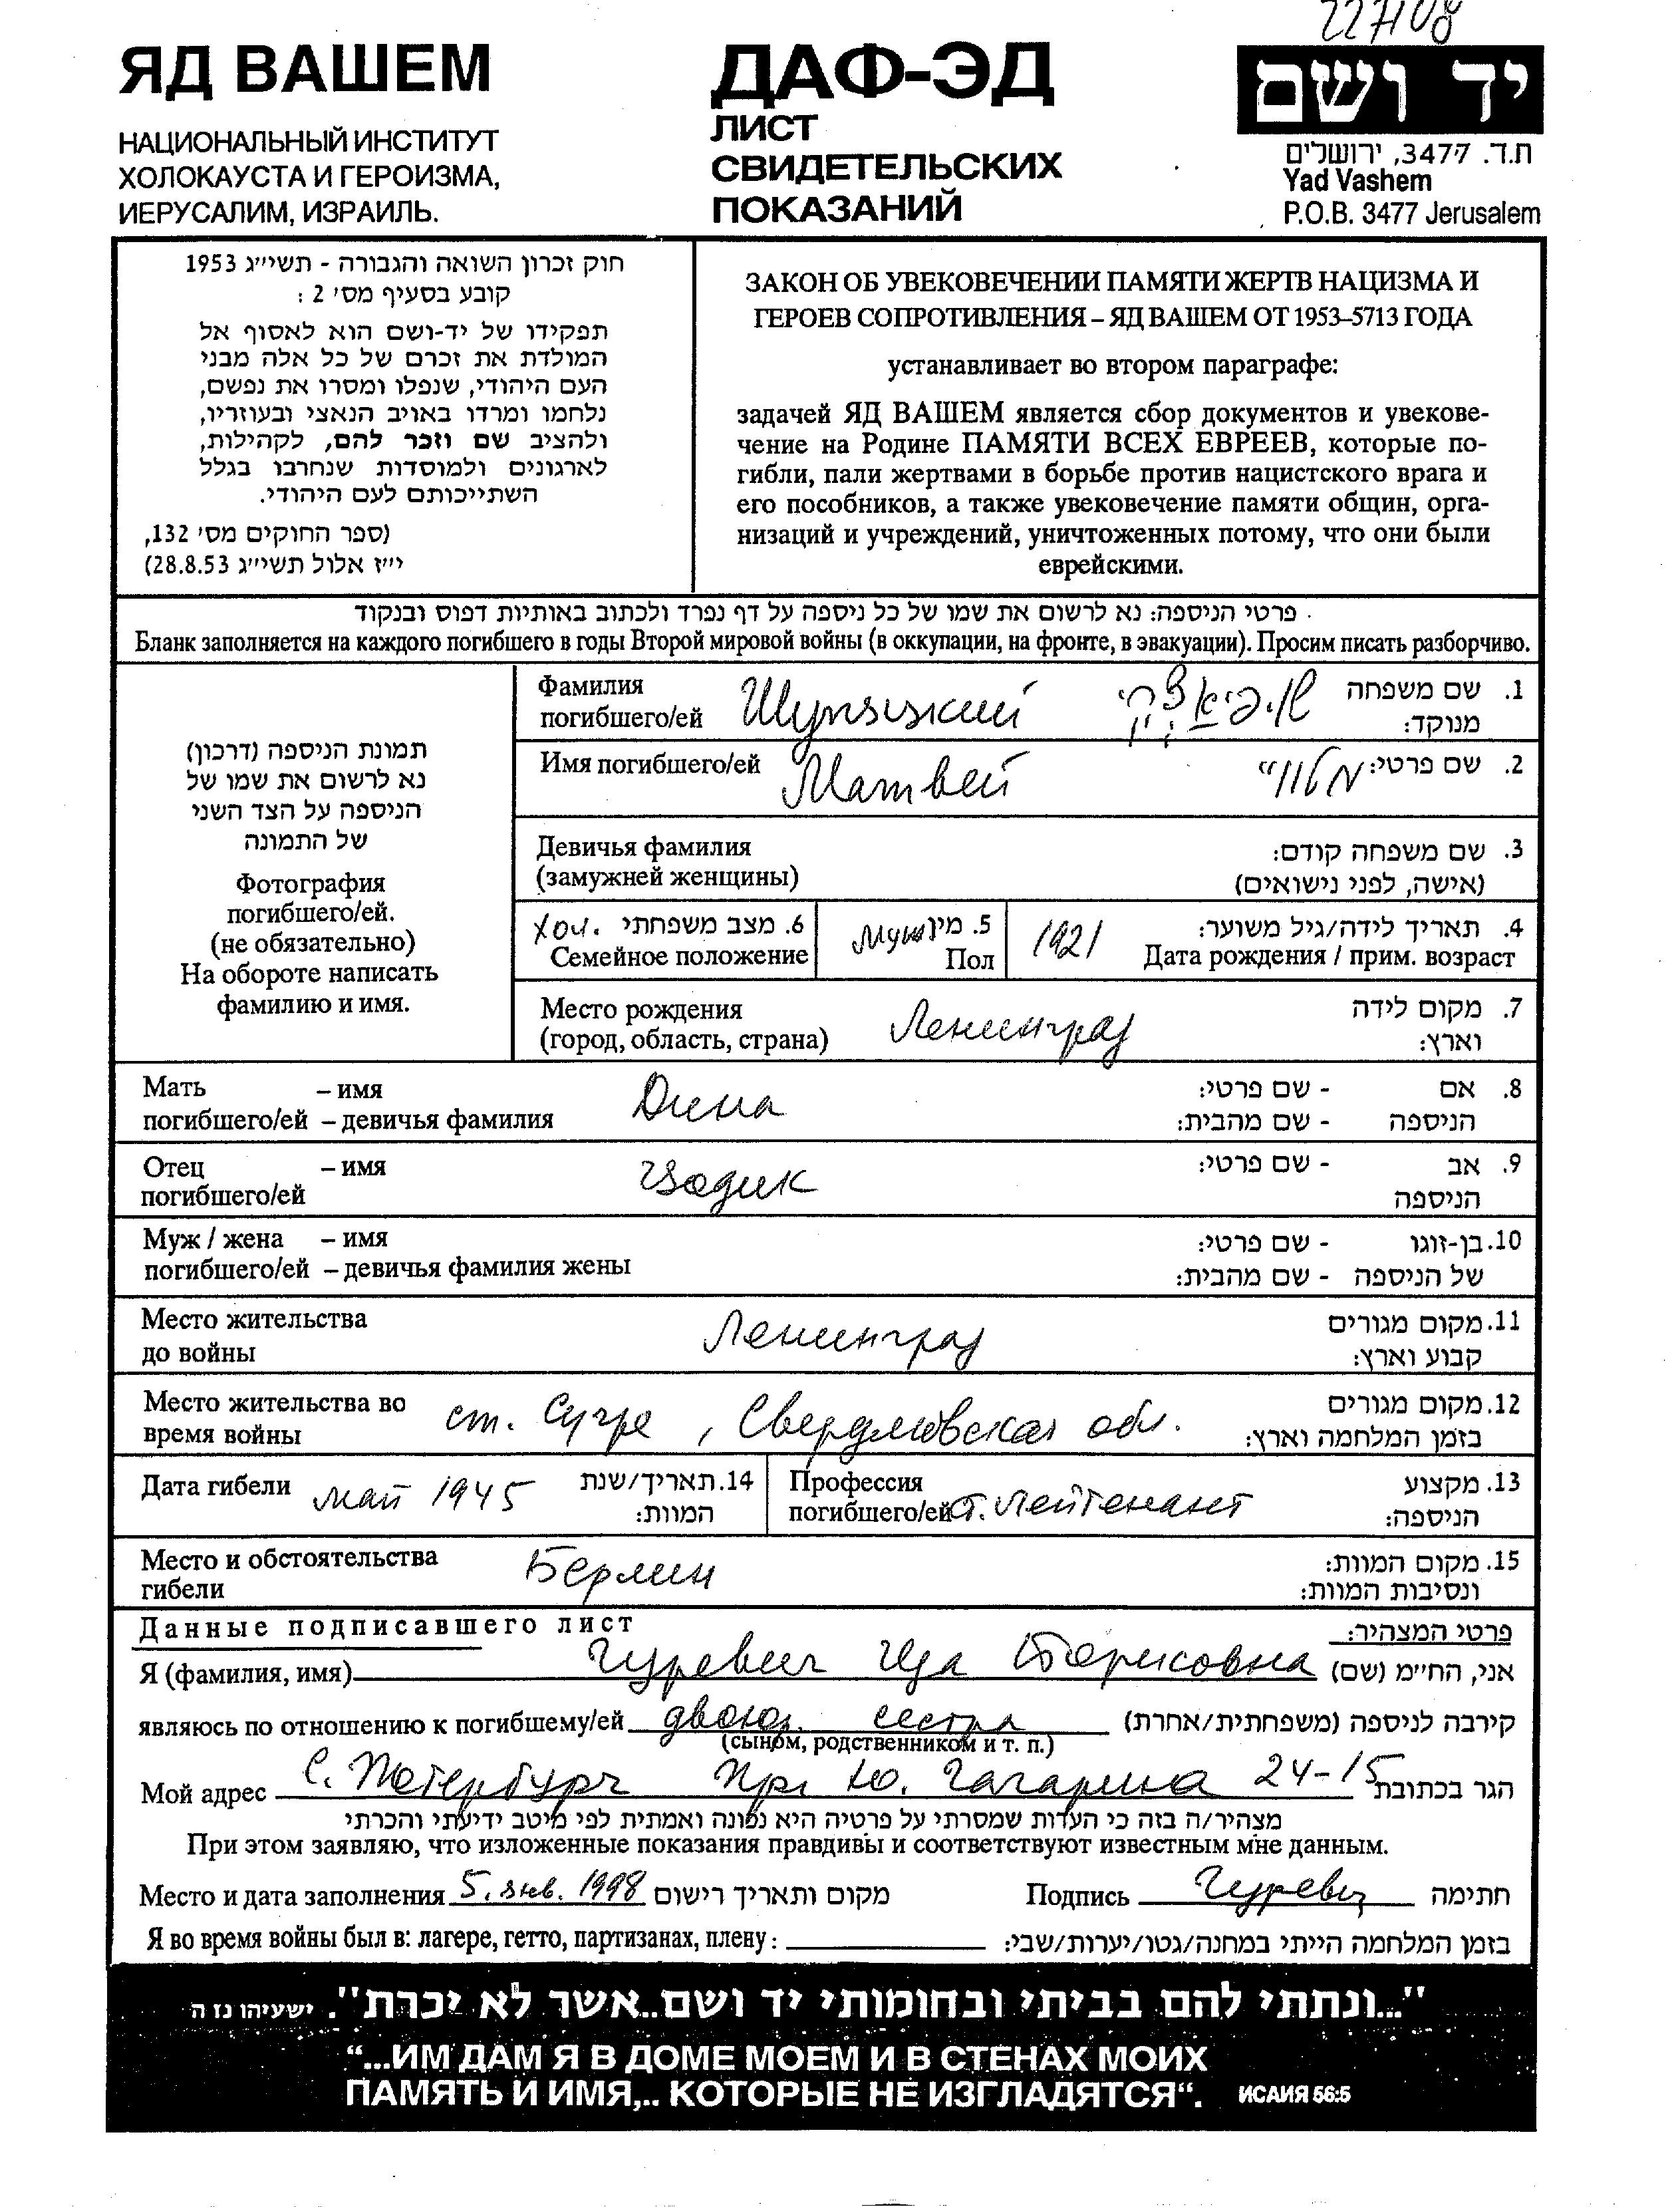 227108
ЯД ВАШЕМ
НАЦИОНАЛЬНЫЙ ИНСТИТУТ
ХОЛОКАУСТА И ГЕРОИЗМА,
ИЕРУСАЛИМ, ИЗРАИЛЬ.
ДАФ-ЭД
ЛИСТ
СВИДЕТЕЛЬСКИХ
ПОКАЗАНИЙ
יד ושם
ת.ד. 3477, ירושלים
Yad Vashem
P.O.B. 3477 Jerusalem
חוק זכרון השואה והגבורה - תשי״ג 1953
קובע בסעיף מס׳ 2 :
תפקידו של יד-ושם הוא לאסוף אל
המולדת את זכרם של כל אלה מבני
העם היהודי, שנפלו ומסרו את נפשם,
נלחמו ומרדו באויב הנאצי ובעוזריו,
ולהציב שם וזכר להם, לקהילות,
לארגונים ולמוסדות שנחרבו בגלל
השתייכותם לעם היהודי.
(ספר החוקים מס׳ 132,
י״ז אלול תשי״ג 28.8.53)
ЗАКОН ОБ УВЕКОВЕЧЕНИИ ПАМЯТИ ЖЕРТВ НАЦИЗМА И
ГЕРОЕВ СОПРОТИВЛЕНИЯ – ЯД ВАШЕМ ОТ 1953–5713 ГОДА
устанавливает во втором параграфе:
задачей ЯД ВАШЕМ является сбор документов и увекове-
чение на Родине ПАМЯТИ ВСЕХ ЕВРЕЕВ, которые по-
гибли, пали жертвами в борьбе против нацистского врага и
его пособников, а также увековечение памяти общин, орга-
низаций и учреждений, уничтоженных потому, что они были
еврейскими.
פרטי הניספה: נא לרשום את שמו של כל ניספה על דף נפרד ולכתוב באותיות דפוס ובנקוד
Бланк заполняется на каждого погибшего в годы Второй мировой войны (в оккупации, на фронте, в эвакуации). Просим писать разборчиво.
תמונת הניספה (דרכון)
נא לרשום את שמו של
הניספה על הצד השני
של התמונה
Фотография
погибшего/ей.
(не обязательно)
На обороте написать
фамилию и имя.
Фамилия погибшего/ей Шупяцкий שופיאצקי 1. שם משפחה מנוקד:
Имя погибшего/ей Матвей מטווי 2. שם פרטי:
Девичья фамилия (замужней женщины) 3. שם משפחה קודם: (אישה, לפני נישואים)
хол. 6. מצב משפחתי Семейное положение
муж 5. מין Пол
1921 4. תאריך לידה/גיל משוער: Дата рождения / прим. возраст
Место рождения (город, область, страна) Ленинград 7. מקום לידה וארץ:
Мать – имя Дина 8. אם - שם פרטי:
погибшего/ей – девичья фамилия הניספה - שם מהבית:
Отец – имя Цодик 9. אב - שם פרטי:
погибшего/ей הניספה
Муж / жена – имя 10. בן-זוגו - שם פרטי:
погибшего/ей – девичья фамилия жены של הניספה - שם מהבית:
Место жительства до войны Ленинград 11. מקום מגורים קבוע וארץ:
Место жительства во время войны ст. Сугре, Свердловская обл. 12. מקום מגורים בזמן המלחמה וארץ:
Дата гибели май 1945 14. תאריך/שנת המוות:
Профессия погибшего/ей ст. лейтенант 13. מקצוע הניספה:
Место и обстоятельства гибели Берлин 15. מקום המוות: ונסיבות המוות:
Данные подписавшего лист פרטי המצהיר:
Я (фамилия, имя) Гуревич Ида Борисовна אני, הח״מ (שם)
являюсь по отношению к погибшему/ей двоюр. сестра קירבה לניספה (משפחתית/אחרת)
(сыном, родственником и т. п.)
Мой адрес С. Петербург пр. Ю. Гагарина 24-15 הגר בכתובת
מצהיר/ה בזה כי העדות שמסרתי על פרטיה היא נכונה ואמתית לפי מיטב ידיעתי והכרתי
При этом заявляю, что изложенные показания правдивы и соответствуют известным мне данным.
Место и дата заполнения 5. янв. 1998 מקום ותאריך רישום Подпись Гуревич חתימה
Я во время войны был в: лагере, гетто, партизанах, плену: בזמן המלחמה הייתי במחנה/גטו/יערות/שבי:
"...ונתתי להם בביתי ובחומותי יד ושם..אשר לא יכרת". ישעיהו נז ה
“...ИМ ДАМ Я В ДОМЕ МОЕМ И В СТЕНАХ МОИХ
ПАМЯТЬ И ИМЯ,.. КОТОРЫЕ НЕ ИЗГЛАДЯТСЯ“. ИСАИЯ 56:5